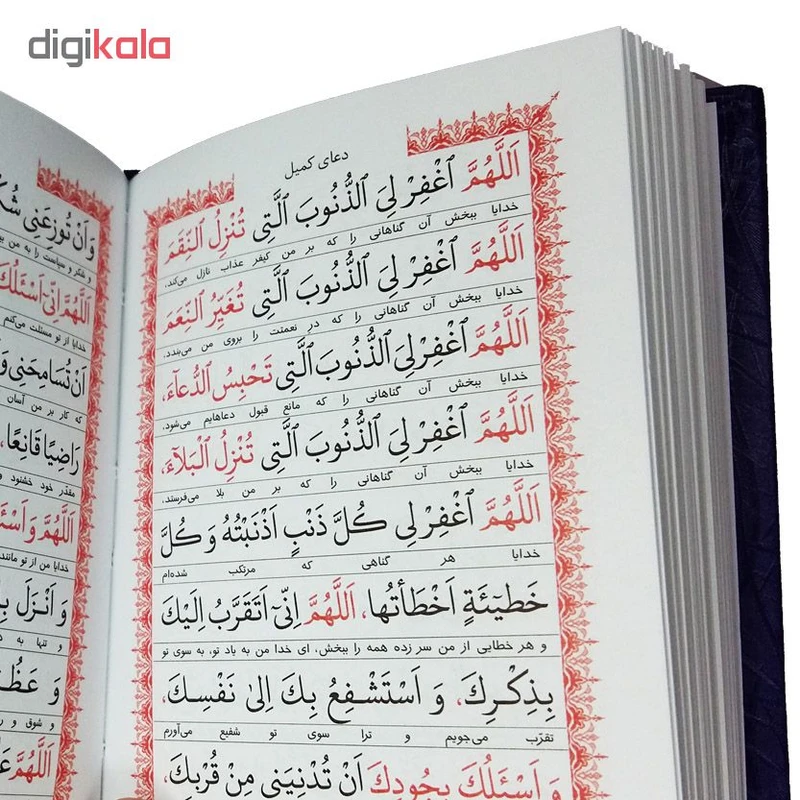 digikala
دعای کمیل
اَللّٰهُمَّ ٱغْفِرْ لِیَ ٱلذُّنُوبَ ٱلَّتِی تُنْزِلُ ٱلنِّقَمَ
خدایا ببخش آن گناهانی را که بر من کیفر عذاب نازل می‌کند،
اَللّٰهُمَّ ٱغْفِرْ لِیَ ٱلذُّنُوبَ ٱلَّتِی تُغَیِّرُ ٱلنِّعَمَ
خدایا ببخش آن گناهانی را که در نعمتت را بروی من می‌بندد،
اَللّٰهُمَّ ٱغْفِرْ لِیَ ٱلذُّنُوبَ ٱلَّتِی تَحْبِسُ ٱلدُّعآءَ،
خدایا ببخش آن گناهانی را که مانع قبول دعاهایم می‌شود،
اَللّٰهُمَّ ٱغْفِرْ لِیَ ٱلذُّنُوبَ ٱلَّتِی تُنْزِلُ ٱلْبَلآءَ،
خدایا ببخش آن گناهانی را که بر من بلا می‌فرستد،
اَللّٰهُمَّ ٱغْفِرْ لِی کُلَّ ذَنْبٍ اَذْنَبْتُهُ وَ کُلَّ
خدایا هر گناهی که مرتکب شده‌ام
خَطیٓئَةٍ اَخْطَأْتُها، اَللّٰهُمَّ اِنّیٓ اَتَقَرَّبُ اِلَیْكَ
و هر خطایی از من سر زده همه را ببخش، ای خدا من به یاد تو، به سوی تو
بِذِکْرِكَ، وَ اَسْتَشْفِعُ بِكَ اِلیٰ نَفْسِكَ،
تقرّب می‌جویم و ترا سوی تو شفیع می‌آورم
وَ اَسْئَلُكَ بِجُودِكَ اَنْ تُدْنِیَنی مِنْ قُرْبِكَ،
وَ اَنْ تُوزِعَنی
و شکر و سپاست را به من
اَللّٰهُمَّ اِنّیٓ اَسْئَلُكَ
خدایا از تو مسئلت می‌کنم
اَنْ تُسامِحَنی وَ
که کار بر من آسان
راضِیًا قانِعًا،
مقدّر خود خشنود و
اَللّٰهُمَّ وَ
خدایا من از تو مانند
وَ اَنْزَلَ
و تنها به
وَ عَظُ
و شوق و
اَللّٰهُمَّ